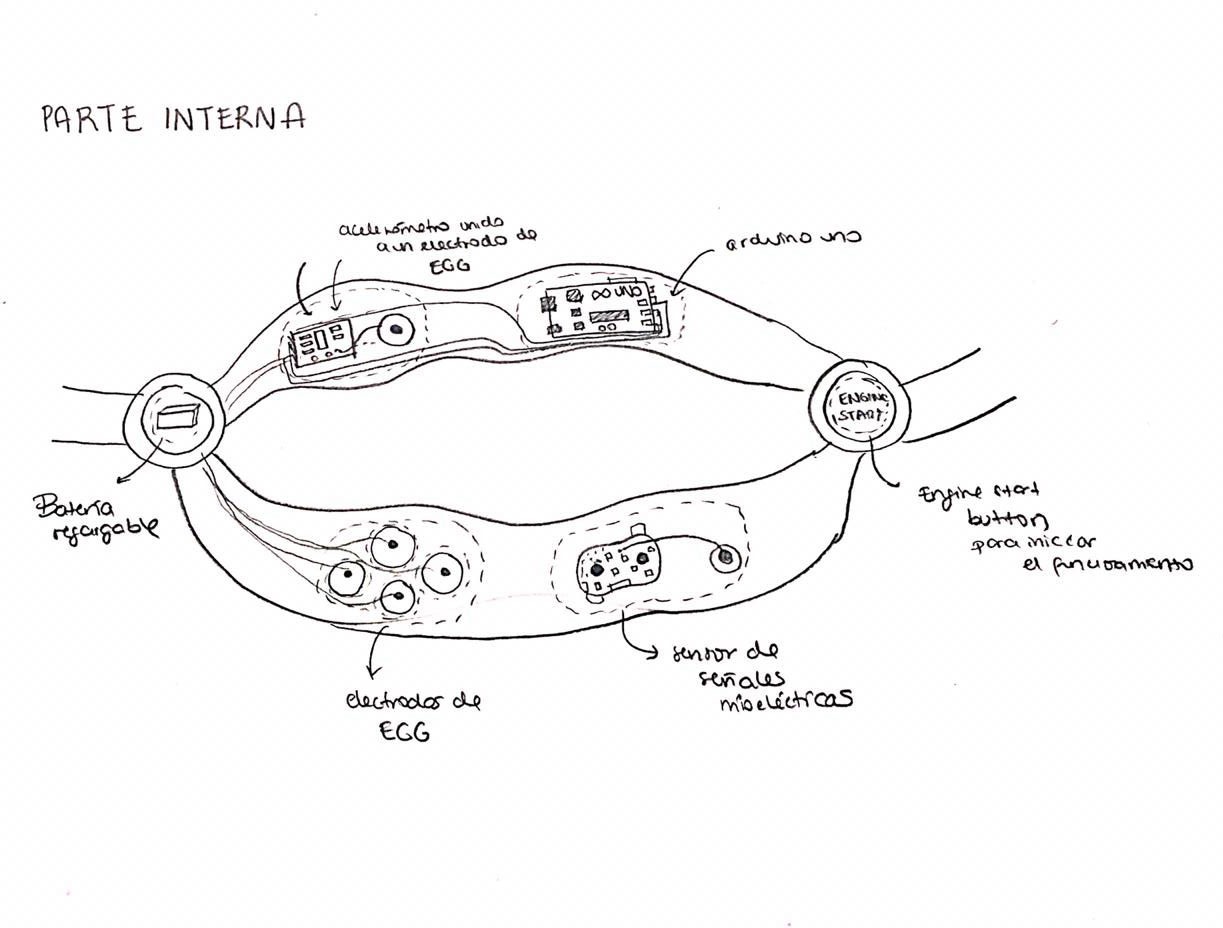 PARTE INTERNA
acelerómetro unido
a un electrodo de
EGG
arduino uno
∞ UNO
ENGINE
START
Batería
regargable
Engine start
button
para iniciar
el funcionamiento
sensor de
señales
mioeléctricas
electrodos de
EGG